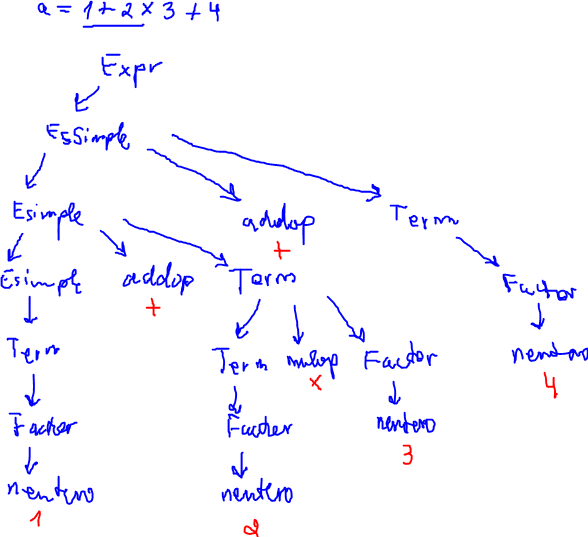 a = 1+2 × 3 + 4
Expr
EsSimple
Esimple addop Term
+
Esimple addop Term Factor
+
Term Term mulop Factor
× 4
Factor Factor nentero
3
nentero nentero
1 2